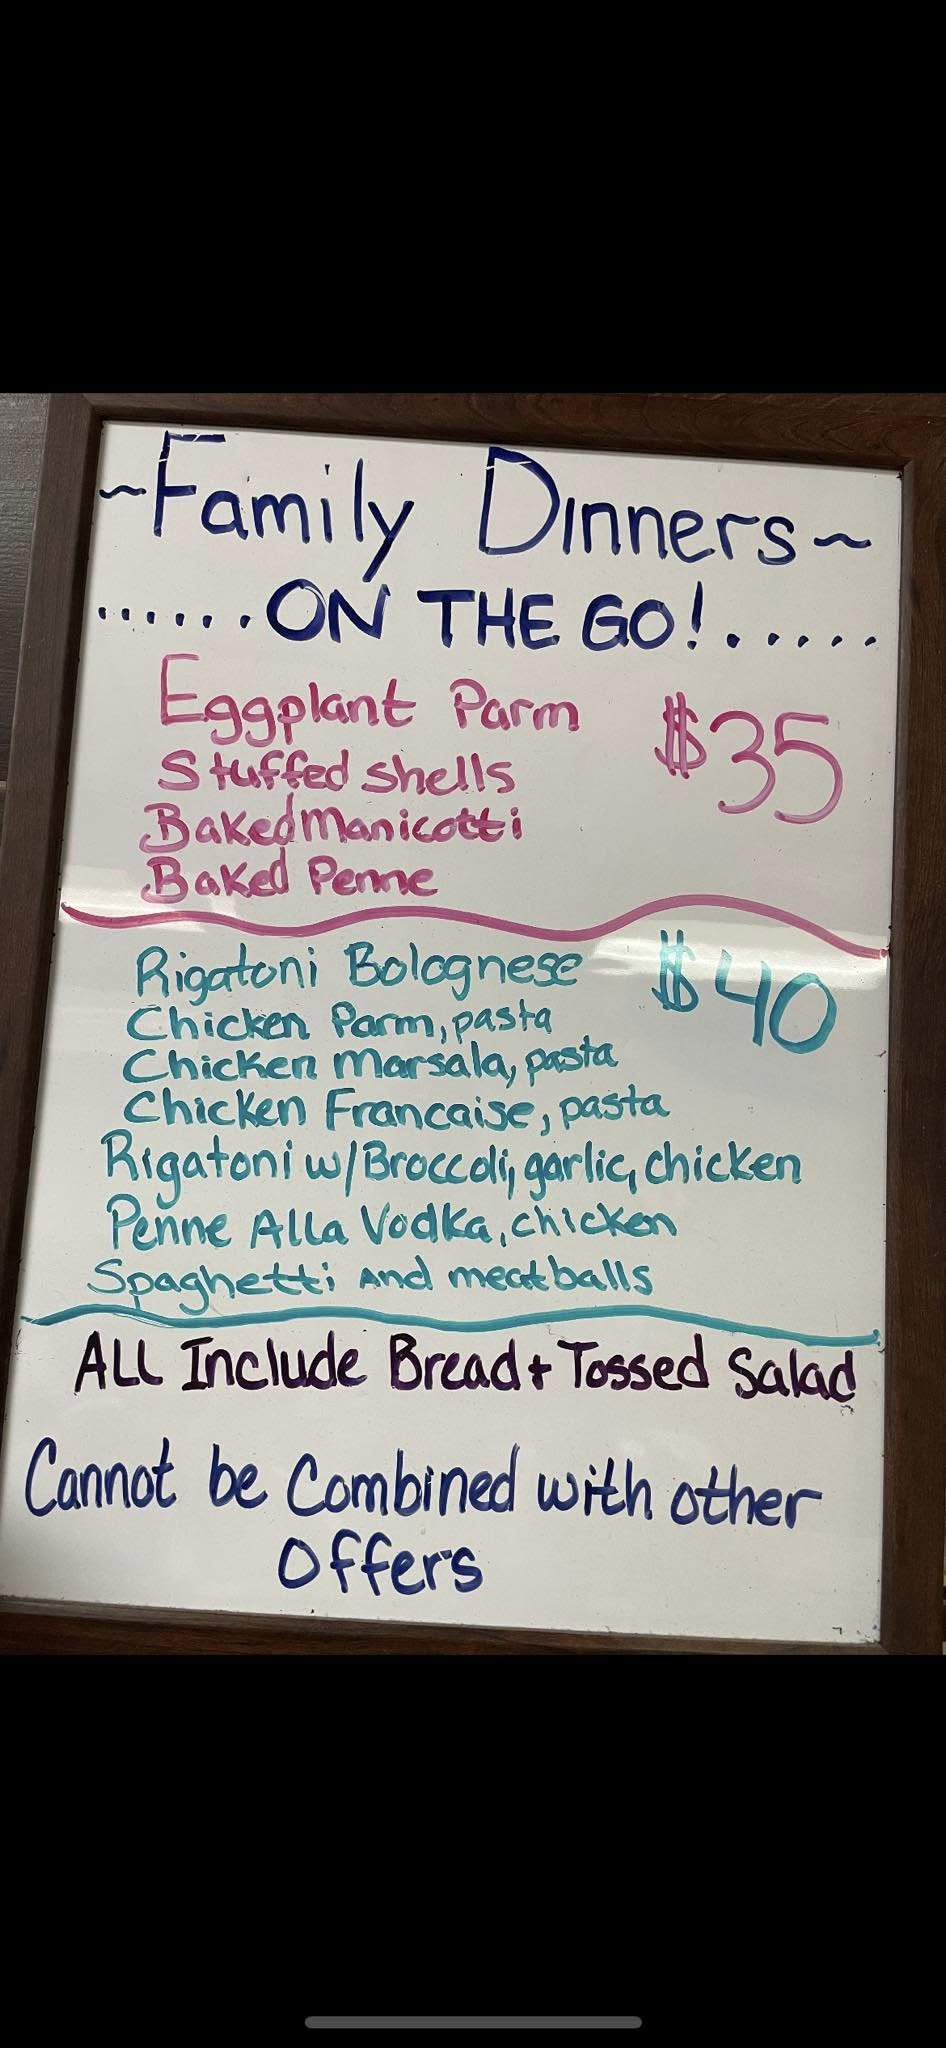 ~Family Dinners~
......ON THE GO!.....
Eggplant Parm $35
Stuffed shells
Baked Manicotti
Baked Penne
Rigatoni Bolognese $40
Chicken Parm, pasta
Chicken Marsala, pasta
Chicken Francaise, pasta
Rigatoni w/Broccoli, garlic, chicken
Penne Alla Vodka, chicken
Spaghetti And meatballs
ALL Include Bread + Tossed Salad
Cannot be Combined with other
Offers